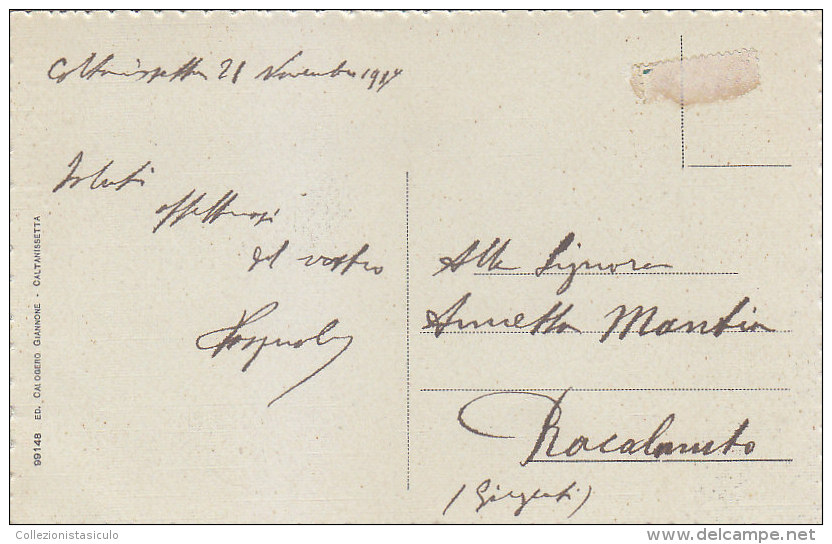 Caltanissetta 21 Novembre 1914
Saluti
affettuosi
dal vostro
Alla Signora
Annetta Mantia
Racalmuto
(Girgenti)
99148 ED. CALOGERO GIANNONE - CALTANISSETTA
Collezionistasiculo
delcampe.net